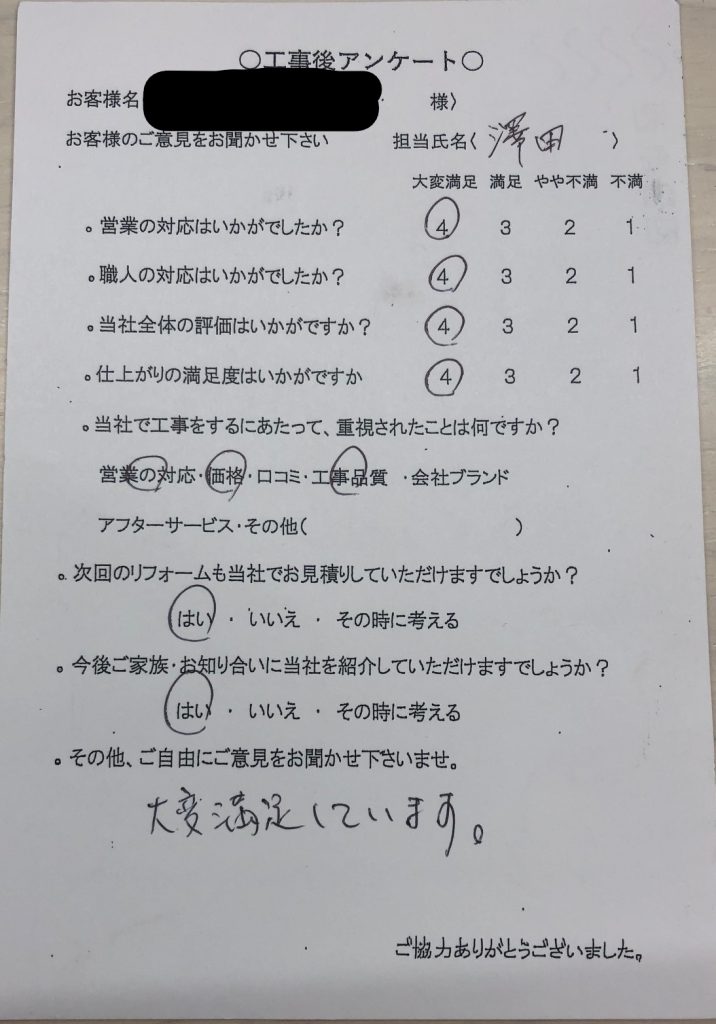 ○工事後アンケート○
お客様名 様〉
お客様のご意見をお聞かせ下さい 担当氏名〈 澤田 〉
大変満足 満足 やや不満 不満
。営業の対応はいかがでしたか？ 4 3 2 1
。職人の対応はいかがでしたか？ 4 3 2 1
。当社全体の評価はいかがですか？ 4 3 2 1
。仕上がりの満足度はいかがですか 4 3 2 1
。当社で工事をするにあたって、重視されたことは何ですか？
営業の対応・価格・口コミ・工事品質 ・会社ブランド
アフターサービス・その他( )
。次回のリフォームも当社でお見積りしていただけますでしょうか？
はい ・ いいえ ・ その時に考える
。今後ご家族・お知り合いに当社を紹介していただけますでしょうか？
はい ・ いいえ ・ その時に考える
。その他、ご自由にご意見をお聞かせ下さいませ。
大変満足しています。
ご協力ありがとうございました。